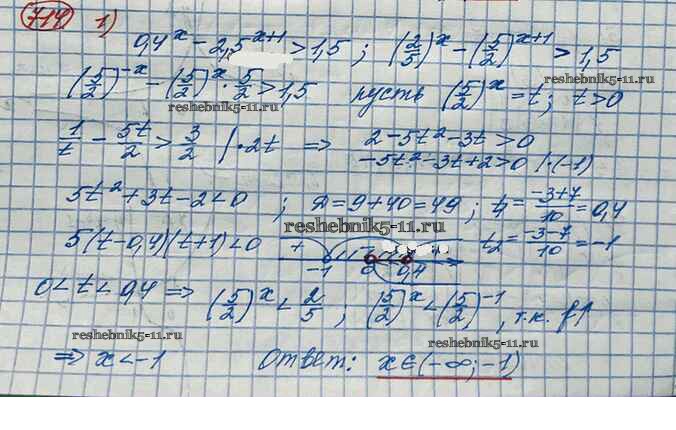 714 1)
0,4^x - 2,5^(x+1) > 1,5 ; (2/5)^x - (5/2)^(x+1) > 1,5
(5/2)^(-x) - (5/2)^x · 5/2 > 1,5 пусть (5/2)^x = t; t>0
reshebnik5-11.ru
reshebnik5-11.ru
1/t - 5t/2 > 3/2 | ·2t ⇒ 2-5t²-3t>0
-5t²-3t+2>0 | ·(-1)
5t²+3t-2<0 ; D=9+40=49 ; t₁=(-3+7)/10=0,4
reshebnik5-11.ru
5(t-0,4)(t+1)<0 + - -1 0 0,4 t₂=(-3-7)/10=-1
0<t<0,4 ⇒ (5/2)^x < 2/5 ; (5/2)^x < (5/2)^(-1) , т.к. f↑
reshebnik5-11.ru
reshebnik5-11.ru
⇒ x<-1 Ответ: x∈(-∞;-1)